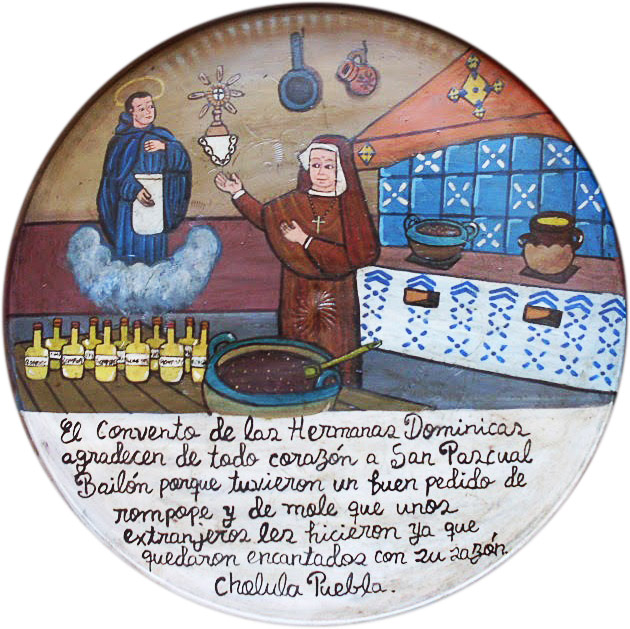 El Convento de las Hermanas Dominicas
agradecen de todo corazón a San Pascual
Bailón porque tuvieron un buen pedido de
rompope y de mole que unos
extranjeros les hicieron ya que
quedaron encantados con su sazón.
Cholula Puebla.